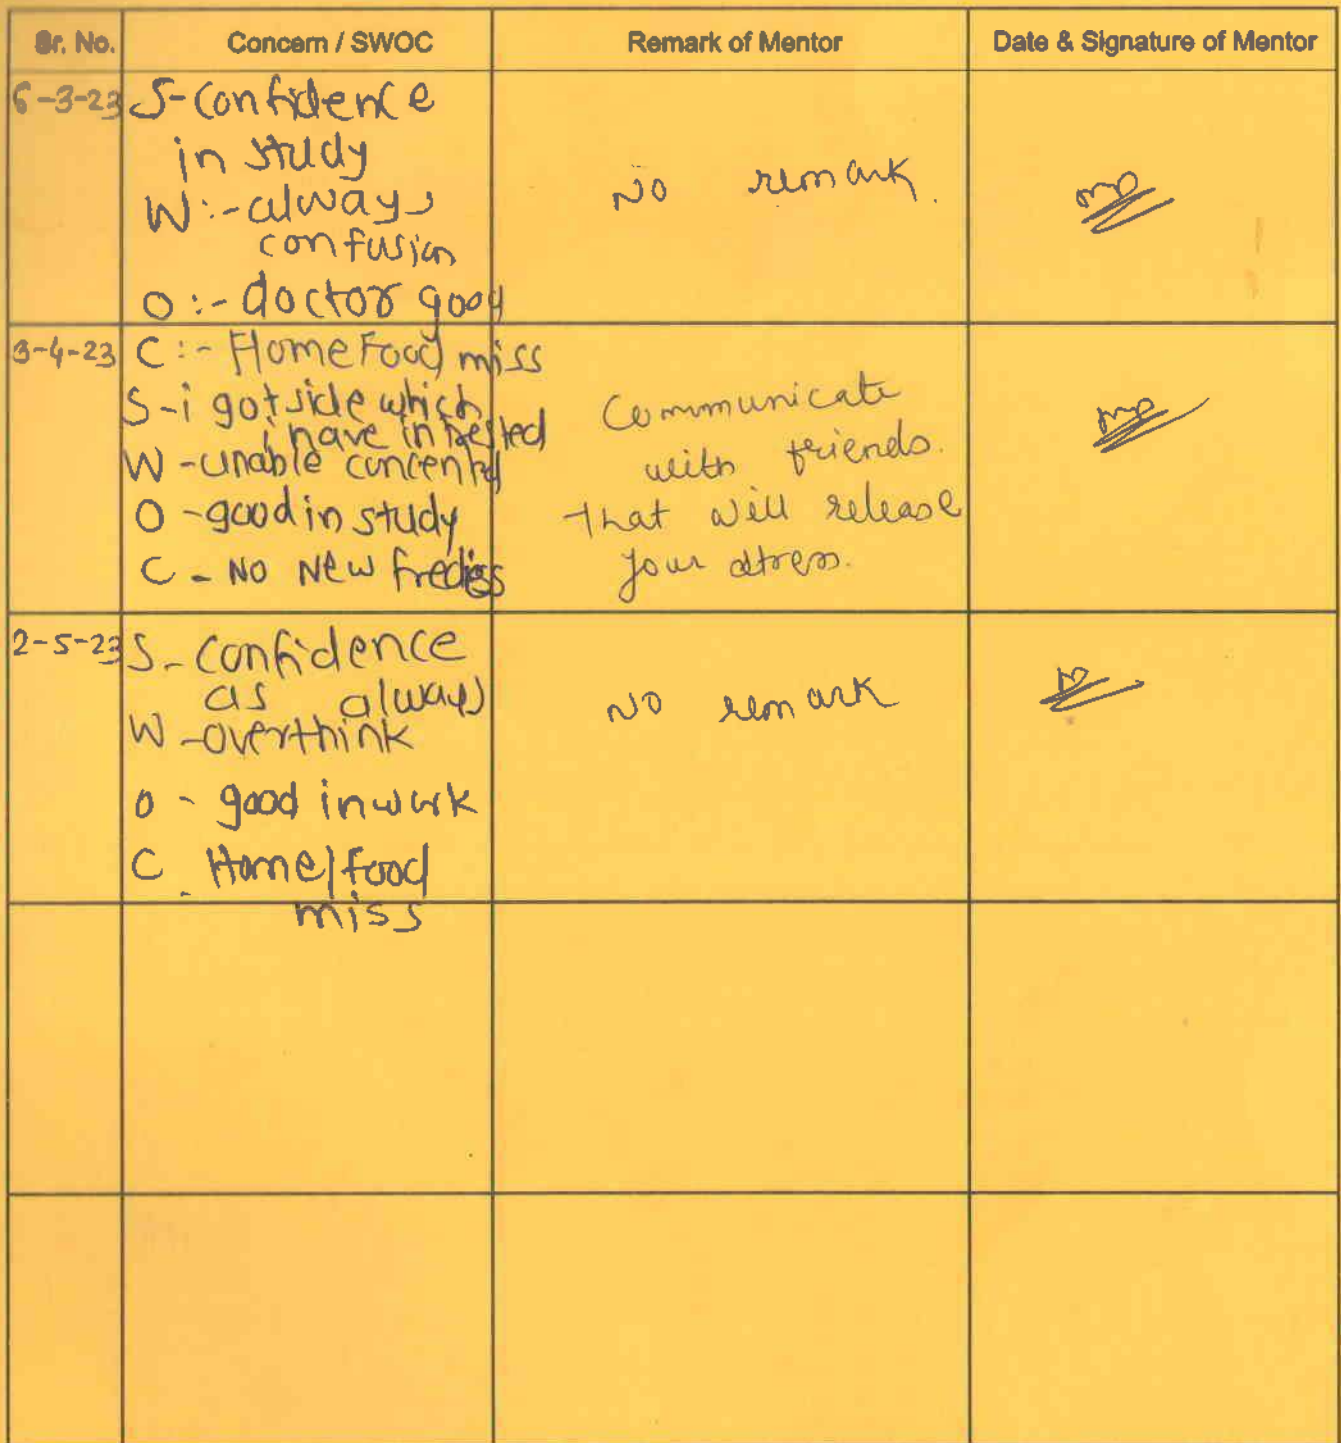 Sr. No. Concern / SWOC Remark of Mentor Date & Signature of Mentor
6-3-23 S-confidence
in study
W:-always
confusion
O:-doctor good
No remark.
3-4-23 C:-Home Food miss
S-i got side which
i have intrested
W-unable
O-good in study
C-No New
Communicate
with friends.
That will release
your stress.
2-5-23 S-confidence
as always
W-overthink
O-good in work
C-Home/food
miss
No remark